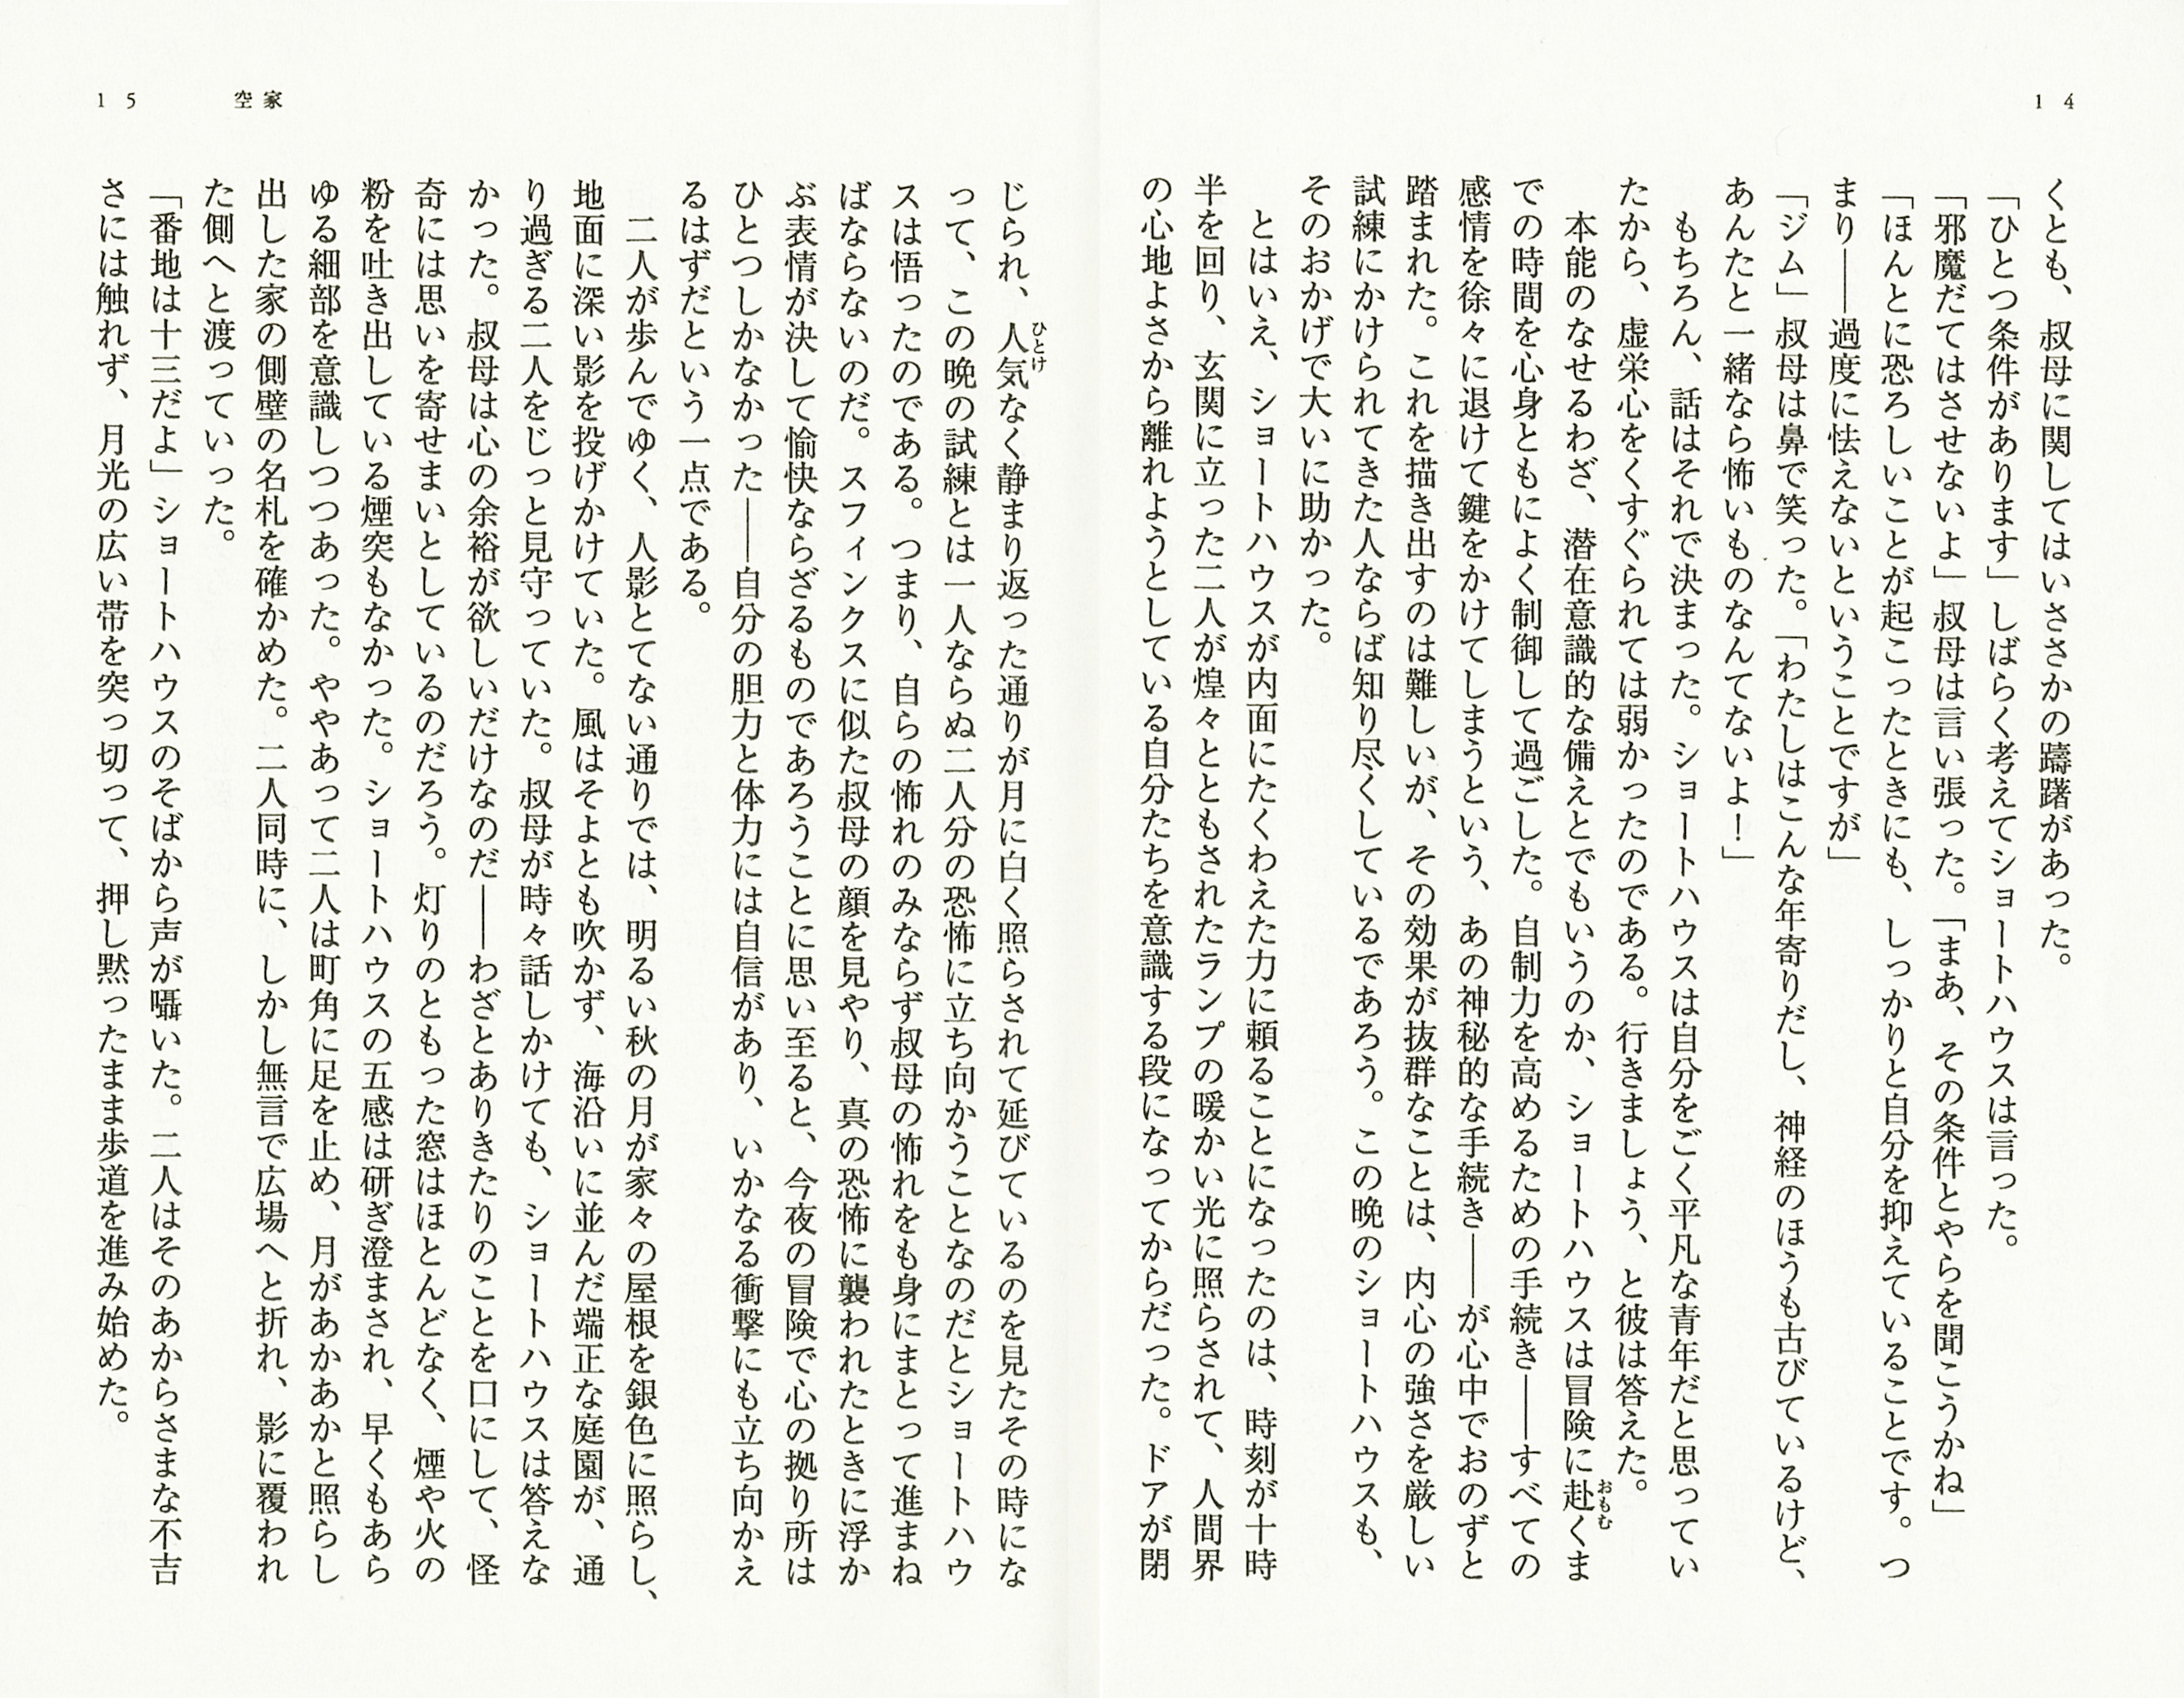 14
くとも、叔母に関してはいささかの躊躇があった。
「ひとつ条件があります」しばらく考えてショートハウスは言った。
「邪魔だてはさせないよ」叔母は言い張った。「まあ、その条件とやらを聞こうかね」
「ほんとに恐ろしいことが起こったときにも、しっかりと自分を抑えていることです。つ
まり――過度に怯えないということですが」
「ジム」叔母は鼻で笑った。「わたしはこんな年寄りだし、神経のほうも古びているけど、
あんたと一緒なら怖いものなんてないよ!」
もちろん、話はそれで決まった。ショートハウスは自分をごく平凡な青年だと思ってい
たから、虚栄心をくすぐられては弱かったのである。行きましょう、と彼は答えた。
本能のなせるわざ、潜在意識的な備えとでもいうのか、ショートハウスは冒険に赴くま
おもむ
での時間を心身ともによく制御して過ごした。自制力を高めるための手続き――すべての
感情を徐々に退けて鍵をかけてしまうという、あの神秘的な手続き――が心中でおのずと
踏まれた。これを描き出すのは難しいが、その効果が抜群なことは、内心の強さを厳しい
試練にかけられてきた人ならば知り尽くしているであろう。この晩のショートハウスも、
そのおかげで大いに助かった。
とはいえ、ショートハウスが内面にたくわえた力に頼ることになったのは、時刻が十時
半を回り、玄関に立った二人が煌々とともされたランプの暖かい光に照らされて、人間界
の心地よさから離れようとしている自分たちを意識する段になってからだった。ドアが閉
15
空家
じられ、人気なく静まり返った通りが月に白く照らされて延びているのを見たその時にな
ひとけ
って、この晩の試練とは一人ならぬ二人分の恐怖に立ち向かうことなのだとショートハウ
スは悟ったのである。つまり、自らの怖れのみならず叔母の怖れをも身にまとって進まね
ばならないのだ。スフィンクスに似た叔母の顔を見やり、真の恐怖に襲われたときに浮か
ぶ表情が決して愉快ならざるものであろうことに思い至ると、今夜の冒険で心の拠り所は
ひとつしかなかった――自分の胆力と体力には自信があり、いかなる衝撃にも立ち向かえ
るはずだという一点である。
二人が歩んでゆく、人影とてない通りでは、明るい秋の月が家々の屋根を銀色に照らし、
地面に深い影を投げかけていた。風はそよとも吹かず、海沿いに並んだ端正な庭園が、通
り過ぎる二人をじっと見守っていた。叔母が時々話しかけても、ショートハウスは答えな
かった。叔母は心の余裕が欲しいだけなのだ――わざとありきたりのことを口にして、怪
奇には思いを寄せまいとしているのだろう。灯りのともった窓はほとんどなく、煙や火の
粉を吐き出している煙突もなかった。ショートハウスの五感は研ぎ澄まされ、早くもあら
ゆる細部を意識しつつあった。ややあって二人は町角に足を止め、月があかあかと照らし
出した家の側壁の名札を確かめた。二人同時に、しかし無言で広場へと折れ、影に覆われ
た側へと渡っていった。
「番地は十三だよ」ショートハウスのそばから声が囁いた。二人はそのあからさまな不吉
さには触れず、月光の広い帯を突っ切って、押し黙ったまま歩道を進み始めた。